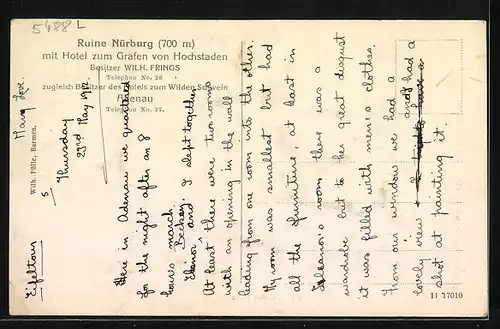 5488 L
Ruine Nürburg (700 m)
mit Hotel zum Grafen von Hochstaden
Besitzer WILH. FRINGS
Telephon No. 28
zugleich Besitzer des Hotels zum Wilden Schwein
Adenau
Telephon No. 21.
Wilh. Fülle, Barmen.
11 17010
Eifeltour
Many Love.
Thursday
23rd May 1912
Here in Adenau we quartered
for the night after an 8
hours march.
Becker,
Eleanor and I slept together
At least there were two rooms
with an opening in the wall
leading from one room into the other.
My room was smallest but had
all the furniture, at least in
Eleanor's room there was a
wardrobe but to her great disgust
it was filled with men's clothes.
From our window we had a
lovely view and had a
shot at painting it.